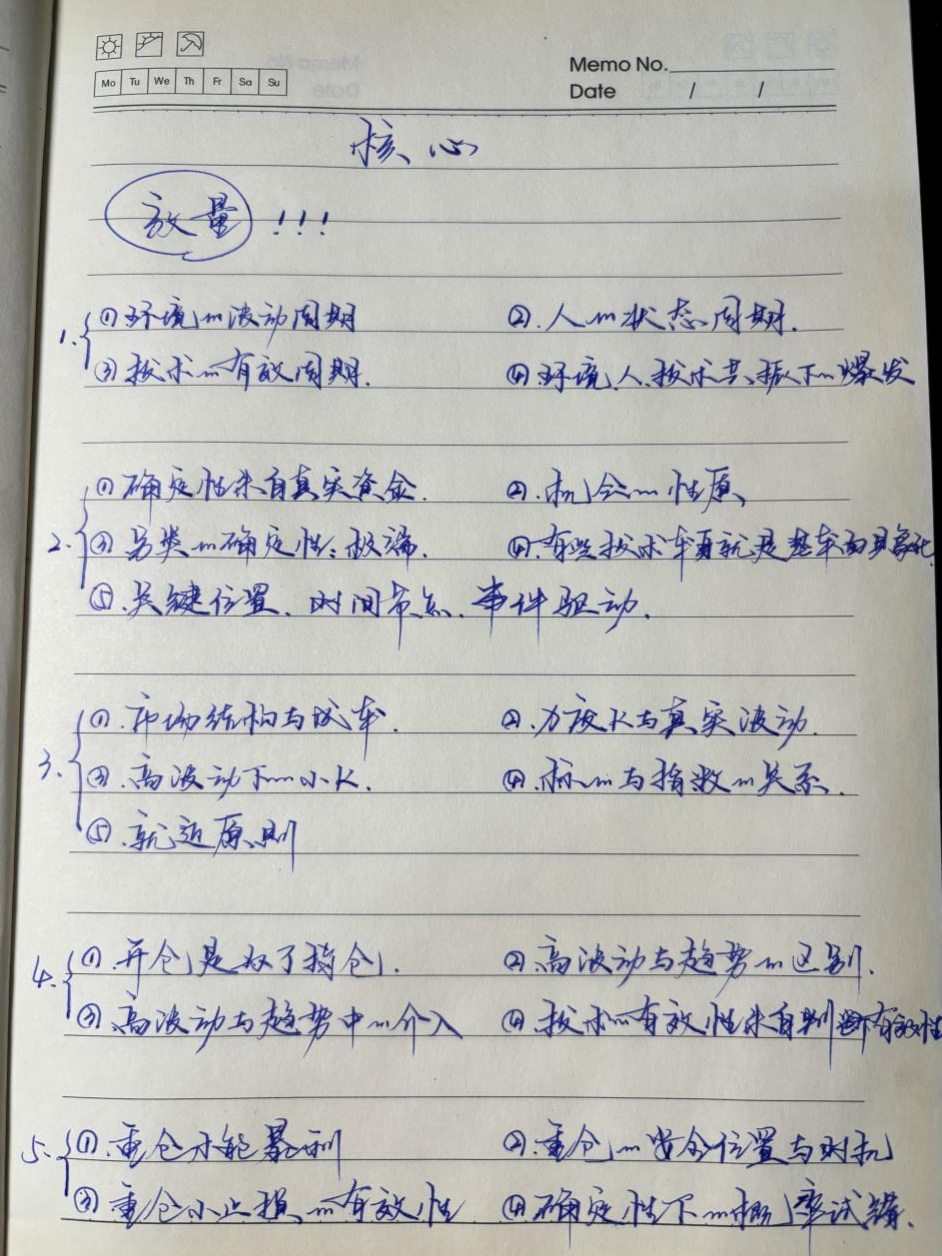 Mo Tu We Th Fr Sa Su
Memo No.
Date / /
核心
放量!!!
1. ①环境的波动周期 ②.人的状态周期.
③技术的有效周期. ④环境,人,技术共振下的爆发
2. ①确定性来自真实资金. ②.机会的性质
③另类的确定性:极端. ④.有些技术本身就是基本面具象化.
⑤.关键位置.时间节点.事件驱动.
3. ①.市场结构与成本. ②.力度K与真实波动.
③.高波动下的小K. ④.标的与指数的关系.
⑤.就近原则
4. ①.开仓是为了持仓. ②.高波动与趋势的区别.
③.高波动与趋势中的介入 ④.技术的有效性来自判断有效性
5. ①.重仓才能暴利 ②.重仓的安全位置与时机
③重仓小止损的有效性 ④确定性下的概率试错.